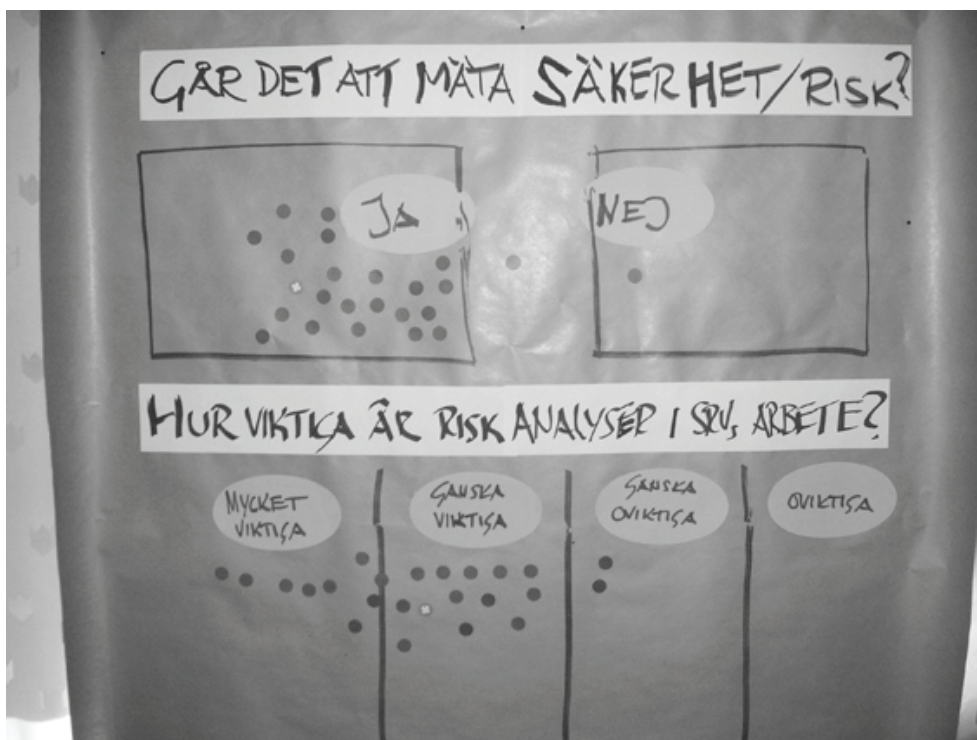 GÅR DET ATT MÄTA SÄKERHET/RISK?
JA
NEJ
HUR VIKTIGA ÄR RISKANALYSER I SRV:s ARBETE?
MYCKET
VIKTIGA
GANSKA
VIKTIGA
GANSKA
OVIKTIGA
OVIKTIGA